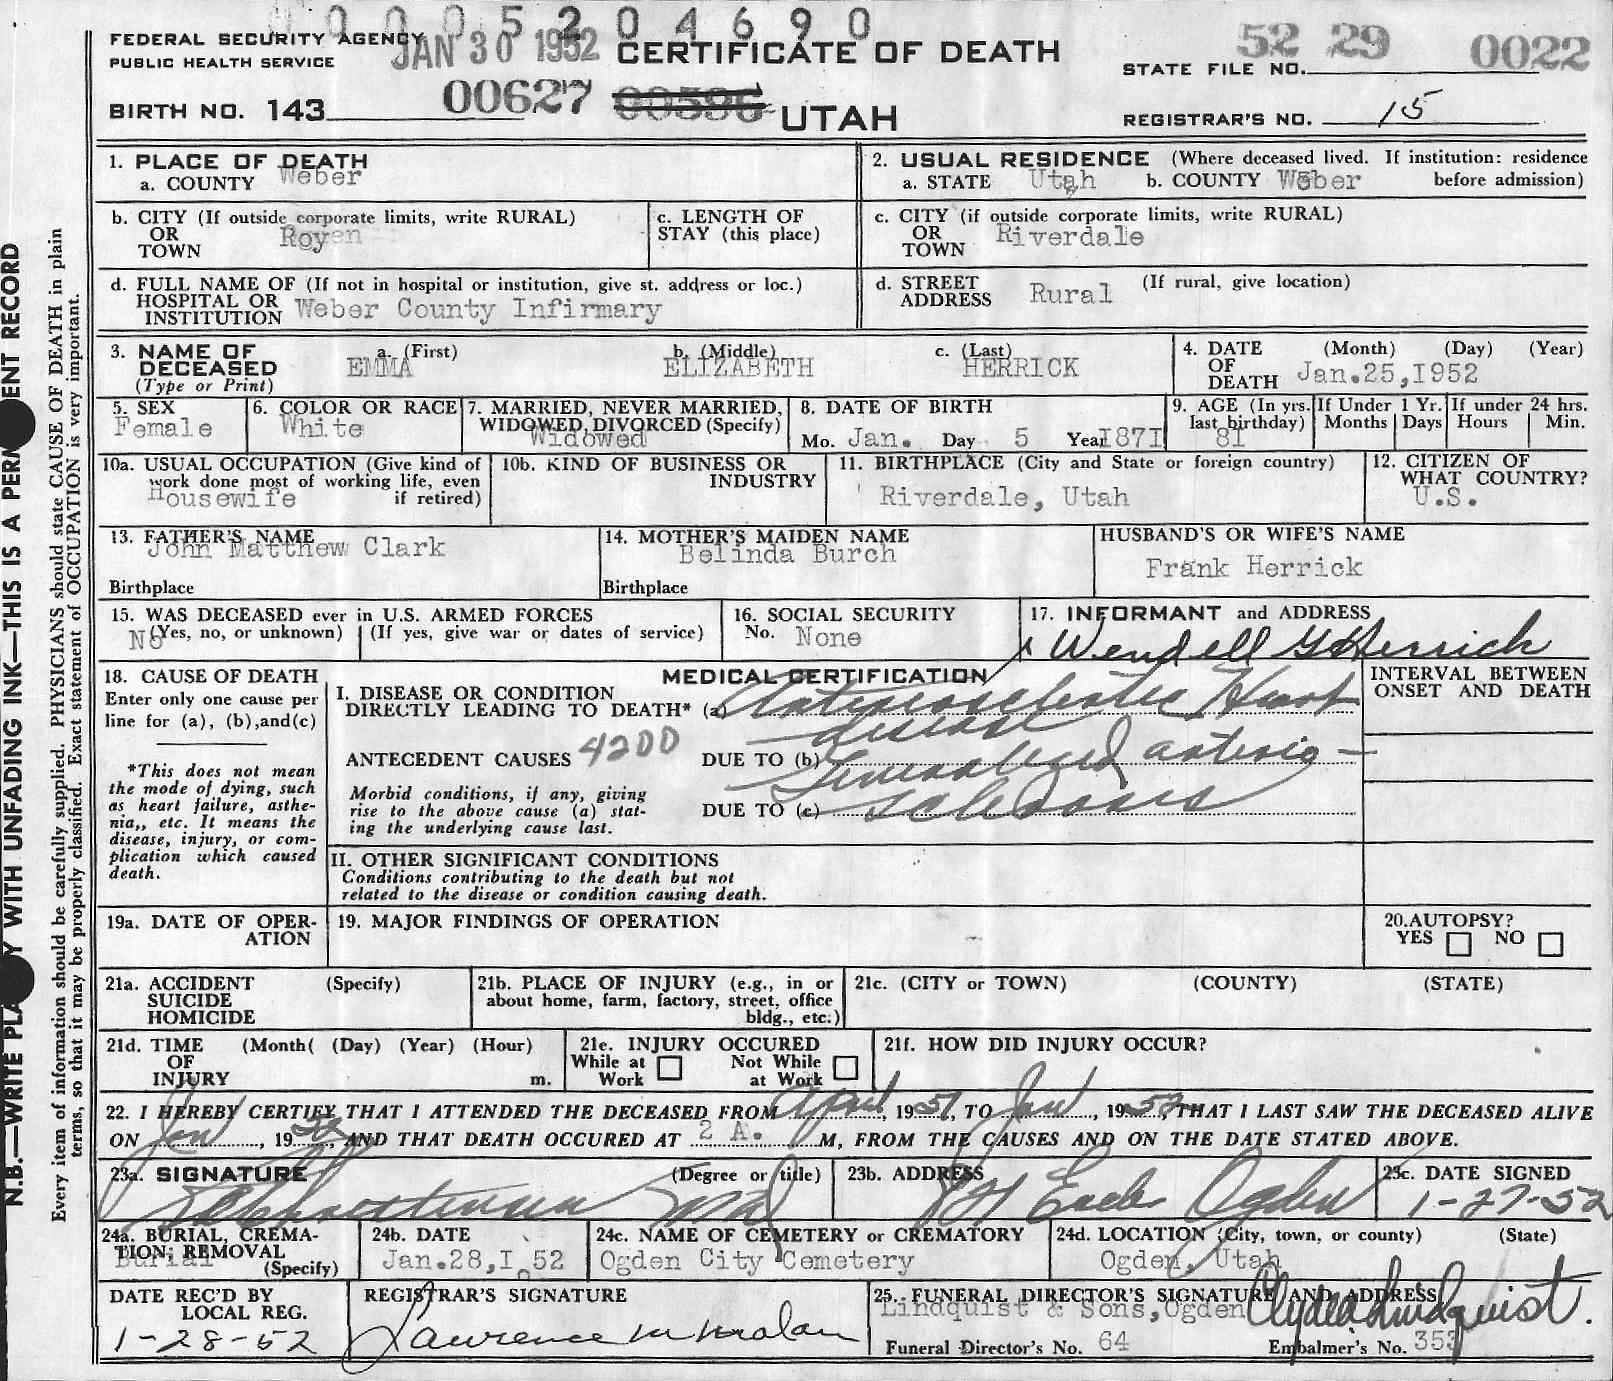 000520 4690
FEDERAL SECURITY AGENCY
PUBLIC HEALTH SERVICE
JAN 30 1952
CERTIFICATE OF DEATH
STATE FILE NO. 52 29 0022
BIRTH NO. 143 00627 00596 UTAH
REGISTRAR'S NO. 15
1. PLACE OF DEATH
a. COUNTY Weber
2. USUAL RESIDENCE (Where deceased lived. If institution: residence before admission)
a. STATE Utah b. COUNTY Weber
b. CITY (If outside corporate limits, write RURAL)
OR
TOWN Royen
c. LENGTH OF
STAY (this place)
c. CITY (if outside corporate limits, write RURAL)
OR
TOWN Riverdale
d. FULL NAME OF (If not in hospital or institution, give st. address or loc.)
HOSPITAL OR
INSTITUTION Weber County Infirmary
d. STREET ADDRESS Rural (If rural, give location)
3. NAME OF DECEASED
(Type or Print)
a. (First) EMMA
b. (Middle) ELIZABETH
c. (Last) HERRICK
4. DATE OF DEATH (Month) (Day) (Year)
Jan.25,I952
5. SEX
Female
6. COLOR OR RACE
White
7. MARRIED, NEVER MARRIED, WIDOWED, DIVORCED (Specify)
Widowed
8. DATE OF BIRTH
Mo. Jan. Day 5 Year I87I
9. AGE (In yrs. last birthday) 8I
If Under 1 Yr. Months Days
If under 24 hrs. Hours Min.
10a. USUAL OCCUPATION (Give kind of work done most of working life, even if retired)
Housewife
10b. KIND OF BUSINESS OR INDUSTRY
11. BIRTHPLACE (City and State or foreign country)
Riverdale, Utah
12. CITIZEN OF WHAT COUNTRY?
U.S.
13. FATHER'S NAME
John Matthew Clark
Birthplace
14. MOTHER'S MAIDEN NAME
Belinda Burch
Birthplace
HUSBAND'S OR WIFE'S NAME
Frank Herrick
15. WAS DECEASED ever in U.S. ARMED FORCES
No (Yes, no, or unknown) (If yes, give war or dates of service)
16. SOCIAL SECURITY
No. None
17. INFORMANT and ADDRESS
x Wendell G Herrick
18. CAUSE OF DEATH
Enter only one cause per line for (a), (b),and(c)
*This does not mean the mode of dying, such as heart failure, asthenia,, etc. It means the disease, injury, or complication which caused death.
MEDICAL CERTIFICATION
I. DISEASE OR CONDITION
DIRECTLY LEADING TO DEATH* (a) Arteriosclerotic Heart
disease
ANTECEDENT CAUSES 4200
DUE TO (b) Generalized arterio-
Morbid conditions, if any, giving rise to the above cause (a) stating the underlying cause last.
DUE TO (c) sclerosis
INTERVAL BETWEEN
ONSET AND DEATH
II. OTHER SIGNIFICANT CONDITIONS
Conditions contributing to the death but not
related to the disease or condition causing death.
19a. DATE OF OPERATION
19. MAJOR FINDINGS OF OPERATION
20.AUTOPSY?
YES NO
21a. ACCIDENT (Specify)
SUICIDE
HOMICIDE
21b. PLACE OF INJURY (e.g., in or about home, farm, factory, street, office bldg., etc.)
21c. (CITY or TOWN) (COUNTY) (STATE)
21d. TIME (Month( (Day) (Year) (Hour)
OF
INJURY m.
21e. INJURY OCCURED
While at Work Not While at Work
21f. HOW DID INJURY OCCUR?
22. I HEREBY CERTIFY THAT I ATTENDED THE DECEASED FROM April, 1951, TO Jan, 1952, THAT I LAST SAW THE DECEASED ALIVE
ON Jan, 1952, AND THAT DEATH OCCURED AT 2 A. M, FROM THE CAUSES AND ON THE DATE STATED ABOVE.
23a. SIGNATURE (Degree or title)
23b. ADDRESS
Ogden
23c. DATE SIGNED
1-27-52
24a. BURIAL, CREMATION; REMOVAL (Specify)
Burial
24b. DATE
Jan.28,I 52
24c. NAME OF CEMETERY or CREMATORY
Ogden City Cemetery
24d. LOCATION (City, town, or county) (State)
Ogden, Utah
DATE REC'D BY LOCAL REG.
1-28-52
REGISTRAR'S SIGNATURE
Lawrence M Malan
25. FUNERAL DIRECTOR'S SIGNATURE AND ADDRESS
Lindquist & Sons,Ogden Clyde Lindquist.
Funeral Director's No. 64
Embalmer's No. 353
N.B.—WRITE PLA Y WITH UNFADING INK—THIS IS A PERM ENT RECORD
Every item of information should be carefully supplied. PHYSICIANS should state CAUSE OF DEATH in plain
terms, so that it may be properly classified. Exact statement of OCCUPATION is very important.